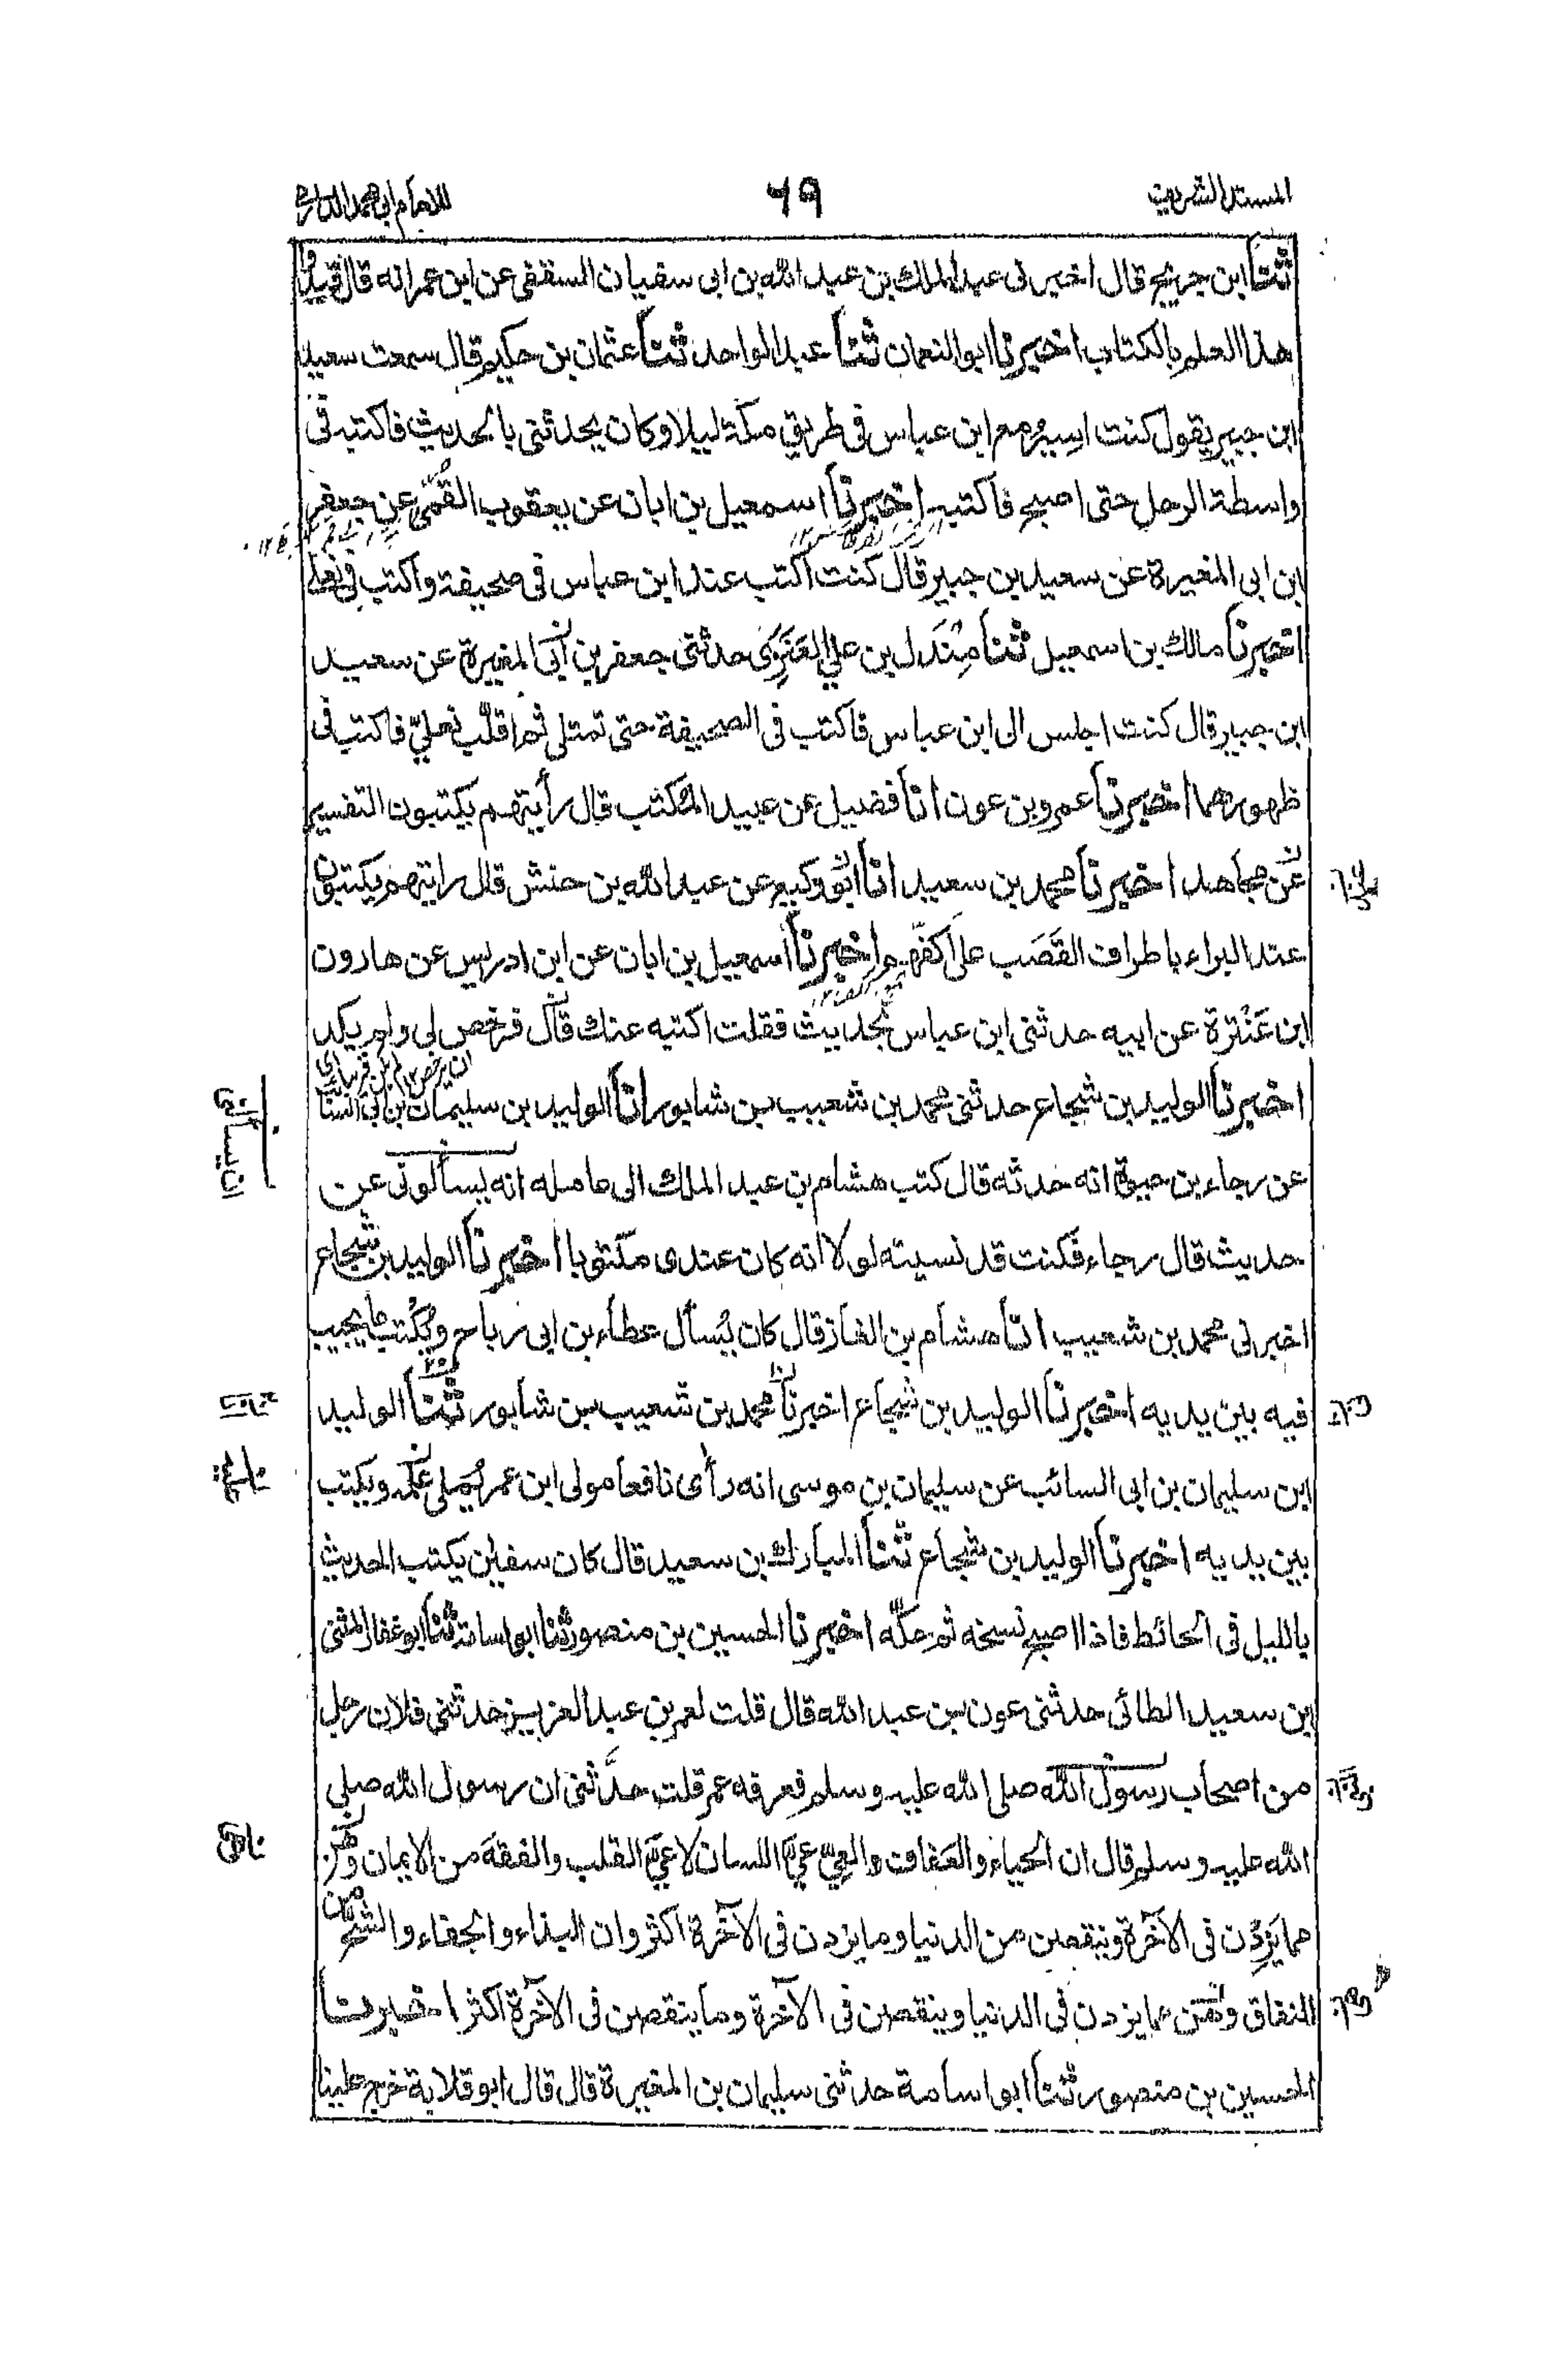 المسند الشريف
٦٩
للامام ابی محمد الدارمی
ثنا ابن جريج قال اخبرنی عبد الملك بن عبد الله بن ابی سفيان السقفی عن ابن عمر انه قال قيدوا
هذا العلم بالكتاب اخبرنا ابو النعمان ثنا عبد الواحد ثنا عثمان بن حكيم قال سمعت سعيد
ابن جبير يقول كنت اسير مع ابن عباس فی طريق مكة ليلا وكان يحدثنی بالحديث فاكتبه فی
واسطة الرحل حتى اصبح فاكتبه اخبرنا اسمعيل بن ابان عن يعقوب القُمّی عن جعفر
ابن ابی المغيرة عن سعيد بن جبير قال كنت اكتب عند ابن عباس فی صحيفة واكتب فی نعلی
اخبرنا مالك بن اسمعيل ثنا مِنْدَل بن علی العَنَزی حدثنی جعفر بن ابی المغيرة عن سعيد
ابن جبير قال كنت اجلس الى ابن عباس فاكتب فی الصحيفة حتى تمتلی ثم اقلّب نعلیّ فاكتب فی
ظهورهما اخبرنا عمرو بن عون انا فضيل عن عبيد المكتب قال رأيتهم يكتبون التفسير
عن مجاهد اخبرنا محمد بن سعيد انا ابو وكيع عن عبد الله بن حنش قال رايتهم يكتبون
عند البراء باطراف القَصَب على اكفّهم اخبرنا اسمعيل بن ابان عن ابن ادريس عن هارون
ابن عَنْترة عن ابيه حدثنی ابن عباس بحديث فقلت اكتبه عنك قال فرخص لی ولم يكد
اخبرنا الوليد بن شجاع حدثنی محمد بن شعيب بن شابور انا الوليد بن سليمان بن ابی السائب
عن رجاء بن حيوة انه حدثه قال كتب هشام بن عبد الملك الى عامله انه يسألونی عن
ان يسألنی
حديث قال رجاء فكنت قد نسيته لولا انه كان عندی مكتوبا اخبرنا الوليد بن شجاع
اخبرنی محمد بن شعيب انا هشام بن الغاز قال كان يُسأل عطاء بن ابی رباح ويُكتب ما يجيب
فيه بين يديه اخبرنا الوليد بن شجاع اخبرنا محمد بن شعيب بن شابور ثنا الوليد
ابن سليمان بن ابی السائب عن سليمان بن موسى انه رأى نافعا مولى ابن عمر يُملی علمه ويكتب
بين يديه اخبرنا الوليد بن شجاع ثنا المبارك بن سعيد قال كان سفين يكتب الحديث
بالليل فی الحائط فاذا اصبح نسخه ثم حكّه اخبرنا الحسين بن منصور ثنا ابو اسامة ثنا ابو غفار المثنى
ابن سعيد الطائی حدثنی عون بن عبد الله قال قلت لعمر بن عبد العزيز حدثنی فلان رجل
من اصحاب رسول الله صلى الله عليه وسلم فعرفه عمر قلت حدَّثنی ان رسول الله صلى
الله عليه وسلم قال ان الحياء والعفاف والعِیّ عیّ اللسان لا عیّ القلب والفقه من الايمان وهن
مما يزدن فی الآخرة وينقصن من الدنيا وما يزدن فی الآخرة اكثر وان البذاء والجفاء والشح من
النفاق وهن مما يزدن فی الدنيا وينقصن فی الآخرة وما ينقصن فی الآخرة اكثر اخبرنا
الحسين بن منصور ثنا ابو اسامة حدثنی سليمان بن المغيرة قال قال ابو قلابة خرج علينا